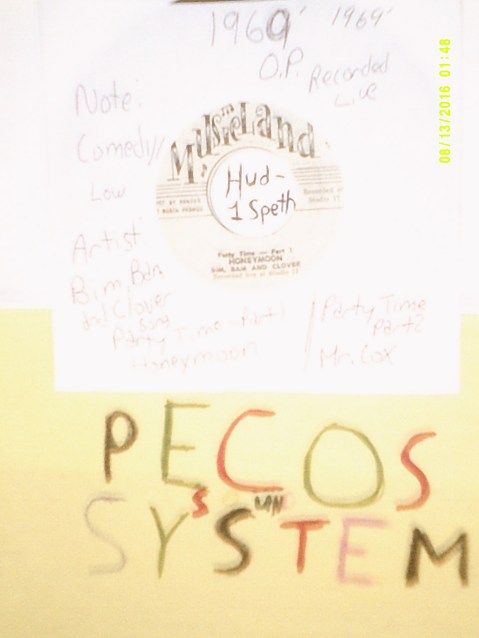 1969' 1969'
O.P. Recorded
Live
Note:
Comedy//
Low
Artist:
Bim, Bam
and Clover
Party Time - Part 1
Honeymoon
Party Time
Part 2
Mr. Cox
in
MusicLand
Hud-
1 Speth
Party Time — Part 1
HONEYMOON
BIM, BAM AND CLOVER
Recorded live at Studio 17
Recorded at
Studio 17
PECOS
SYSTEM
08/13/2016 01:48